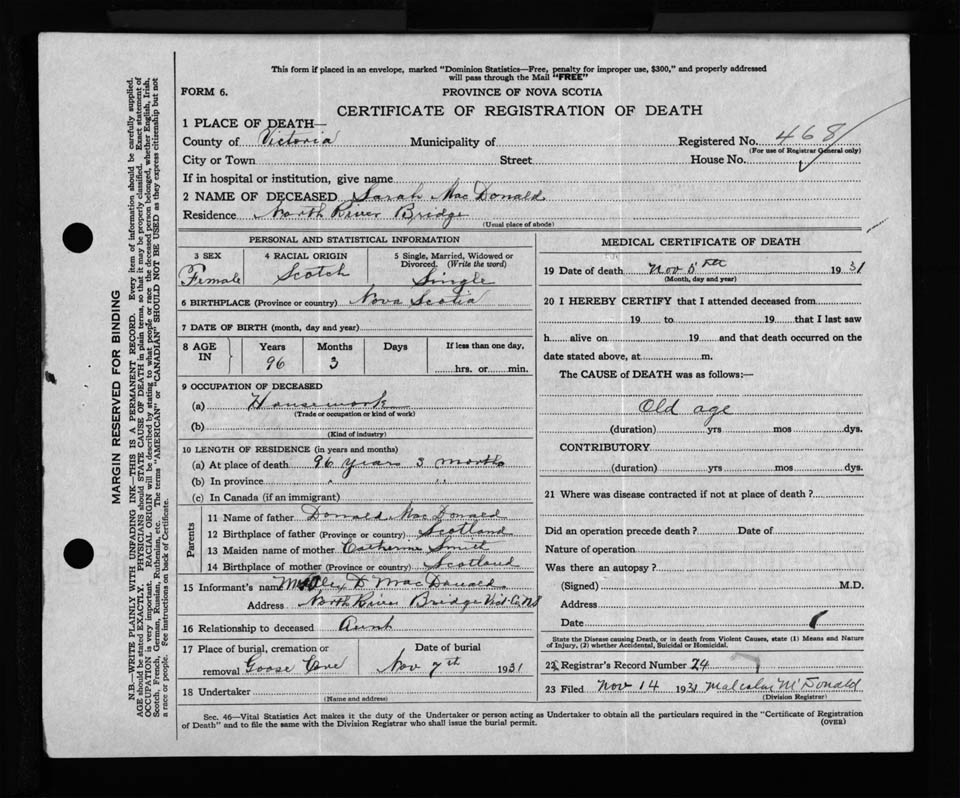 This form if placed in an envelope, marked "Dominion Statistics—Free, penalty for improper use, $300," and properly addressed
will pass through the Mail "FREE"
FORM 6. PROVINCE OF NOVA SCOTIA
CERTIFICATE OF REGISTRATION OF DEATH
1 PLACE OF DEATH—
County of Victoria Municipality of Registered No. 468
(For use of Registrar General only)
City or Town Street House No.
If in hospital or institution, give name
2 NAME OF DECEASED Sarah MacDonald
Residence North River Bridge
(Usual place of abode)
PERSONAL AND STATISTICAL INFORMATION
3 SEX 4 RACIAL ORIGIN 5 Single, Married, Widowed or
Divorced. (Write the word)
Female Scotch Single
6 BIRTHPLACE (Province or country) Nova Scotia
7 DATE OF BIRTH (month, day and year)
8 AGE IN Years Months Days If less than one day,
96 3 hrs. or min.
9 OCCUPATION OF DECEASED
(a) Housework
(Trade or occupation or kind of work)
(b)
(Kind of industry)
10 LENGTH OF RESIDENCE (in years and months)
(a) At place of death 96 years 3 months
(b) In province " "
(c) In Canada (if an immigrant)
Parents
11 Name of father Donald MacDonald
12 Birthplace of father (Province or country) Scotland
13 Maiden name of mother Catherine Smith
14 Birthplace of mother (Province or country) Scotland
15 Informant's name Alex D MacDonald
Address North River Bridge Vict. Co. N S
16 Relationship to deceased Aunt
17 Place of burial, cremation or Date of burial
removal Goose Cove Nov 7th 1931
18 Undertaker
(Name and address)
MEDICAL CERTIFICATE OF DEATH
19 Date of death Nov 5th 1931
(Month, day and year)
20 I HEREBY CERTIFY that I attended deceased from
19 to 19 that I last saw
h alive on 19 and that death occurred on the
date stated above, at m.
The CAUSE of DEATH was as follows:—
Old age
(duration) yrs mos dys.
CONTRIBUTORY
(duration) yrs mos dys.
21 Where was disease contracted if not at place of death?
Did an operation precede death? Date of
Nature of operation
Was there an autopsy?
(Signed) M.D.
Address
Date
State the Disease causing Death, or in death from Violent Causes, state (1) Means and Nature
of Injury, (2) whether Accidental, Suicidal or Homicidal.
22 Registrar's Record Number 24
23 Filed Nov 14 1931 Malcolm McDonald
(Division Registrar)
Sec. 46—Vital Statistics Act makes it the duty of the Undertaker or person acting as Undertaker to obtain all the particulars required in the "Certificate of Registration
of Death" and to file the same with the Division Registrar who shall issue the burial permit. (OVER)
MARGIN RESERVED FOR BINDING
N.B.—WRITE PLAINLY WITH UNFADING INK—THIS IS A PERMANENT RECORD. Every item of information should be carefully supplied.
AGE should be stated EXACTLY. PHYSICIANS should STATE CAUSE OF DEATH in plain terms, so that it may be properly classified. Exact statement of
OCCUPATION is very important. RACIAL ORIGIN will be described by stating to what people or race the deceased person belonged, whether English, Irish,
Scotch, French, German, Russian, Ruthenian, etc. The terms "AMERICAN" or "CANADIAN" SHOULD NOT BE USED as they express citizenship but not
a race or people. Fee instructions on back of Certificate.